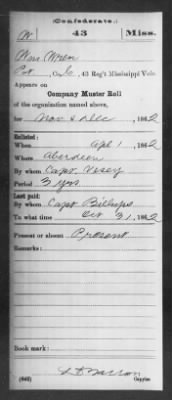 (Confederate.)
W 43 Miss.
Wm Wren
Pvt, Co. C, 43 Reg't Mississippi Vols.
Appears on
Company Muster Roll
of the organization named above,
for Nov & Dec, 1862
Enlisted:
When Apl 1, 1862
Where Aberdeen
By whom Capt Vesey
Period 3 yrs
Last paid:
By whom Capt Billups
To what time Oct 31, 1862
Present or absent Present
Remarks:
Book mark:
(642) Copyist.